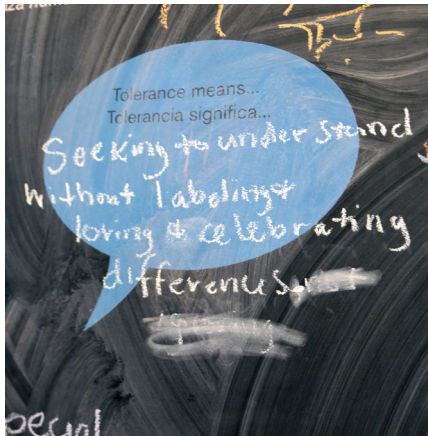 Tolerance means...
Tolerancia significa...
Seeking to understand
without labeling &
loving & celebrating
differences
pecial